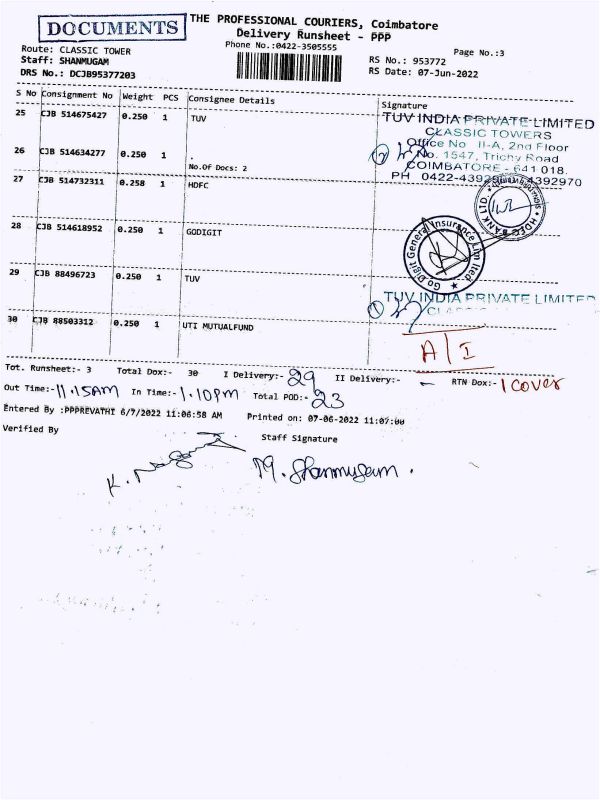 DOCUMENTS
THE PROFESSIONAL COURIERS, Coimbatore
Delivery Runsheet - PPP
Phone No.:0422-3505555
Page No.:3
Route: CLASSIC TOWER
Staff: SHANMUGAM
DRS No.: DCJB95377203
RS No.: 953772
RS Date: 07-Jun-2022
S No Consignment No Weight PCS Consignee Details Signature
25 CJB 514675427 0.250 1 TUV
TUV INDIA PRIVATE LIMITED
CLASSIC TOWERS
Office No II-A, 2nd Floor
26 CJB 514634277 0.250 1 .
No. 1547, Trichy Road
No.Of Docs: 2
COIMBATORE - 641 018.
27 CJB 514732311 0.258 1 HDFC
HDFC BANK LTD.
28 CJB 514618952 0.250 1 GODIGIT
Go Digit General Insurance Limited
29 CJB 88496723 0.250 1 TUV
TUV INDIA PRIVATE LIMITED
30 CJB 88503312 0.250 1 UTI MUTUALFUND
A/I
Tot. Runsheet:- 3 Total Dox:- 30 I Delivery:- 29 II Delivery:- - RTN Dox:- 1 cover
Out Time:- 11.15AM In Time:- 1.10PM Total POD:- 23
Entered By :PPPREVATHI 6/7/2022 11:06:58 AM Printed on: 07-06-2022 11:07:00
Verified By Staff Signature
M. Shanmugam.